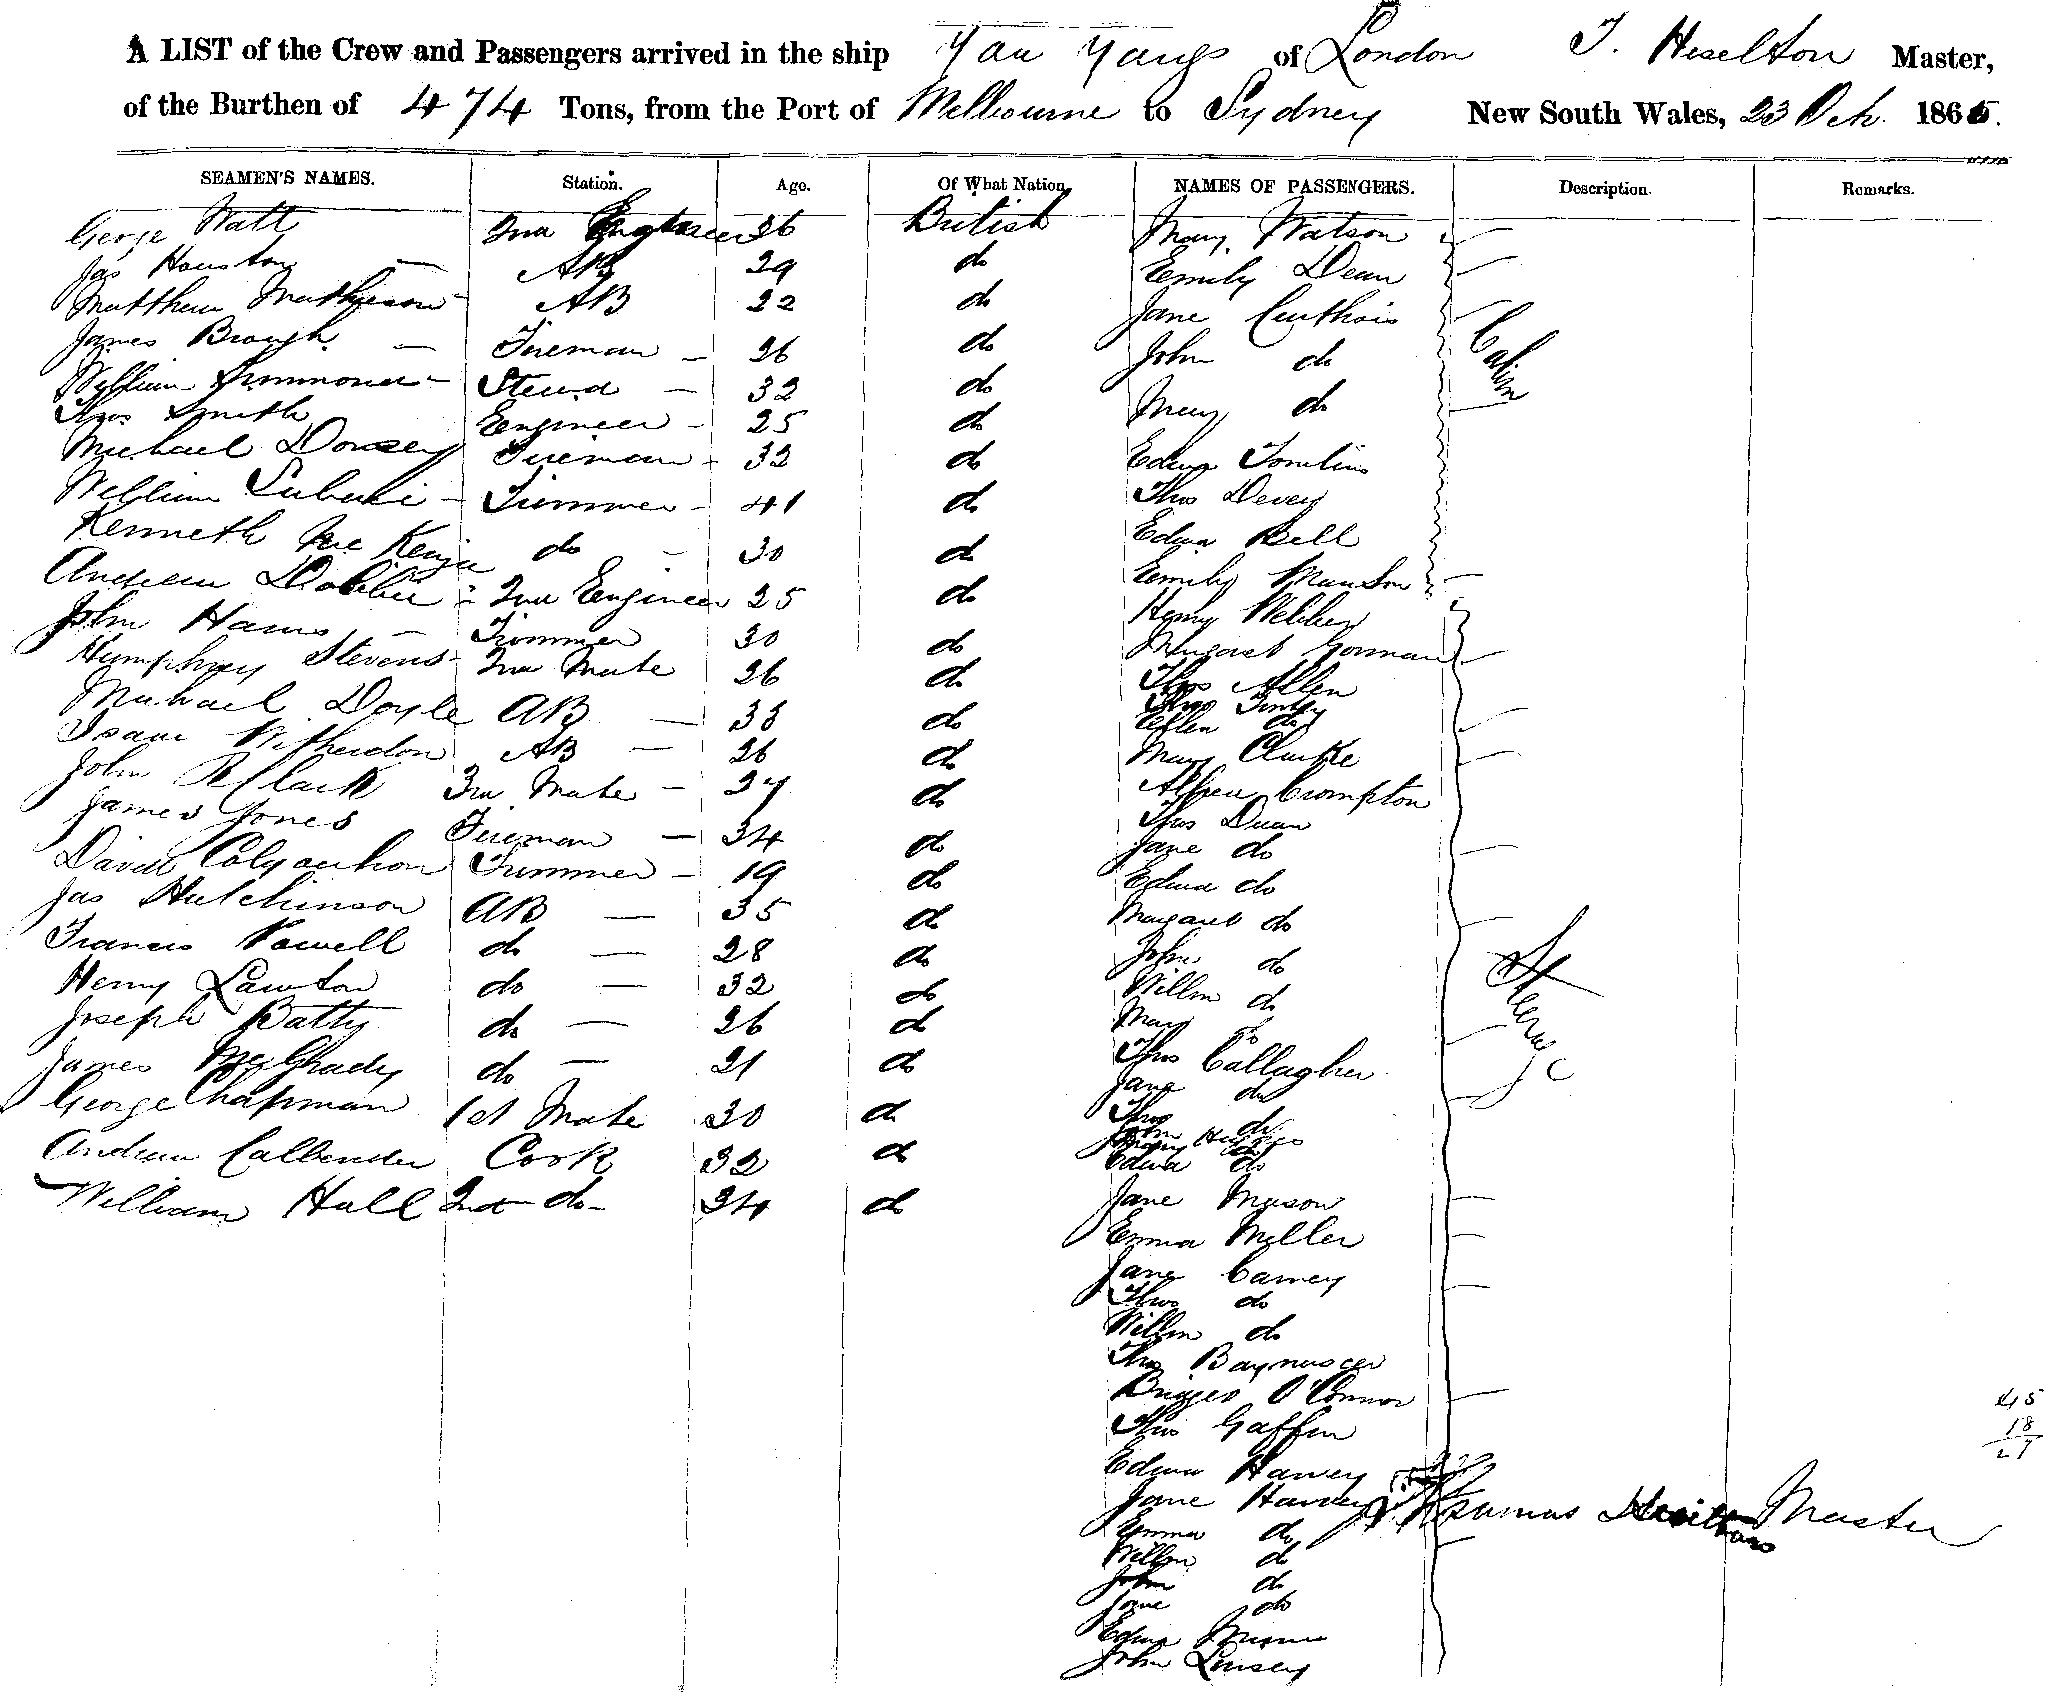 A LIST of the Crew and Passengers arrived in the ship You Yangs of London T. Heselton Master,
of the Burthen of 474 Tons, from the Port of Melbourne to Sydney New South Wales, 23 Oct. 1865.
SEAMEN'S NAMES. Station. Age. Of What Nation. NAMES OF PASSENGERS. Description. Remarks.
George Watt 2nd Engineer 36 British Mary Watson
Jas Houston AB 29 do Emily Dean
Matthew Mathieson AB 22 do Jane
James Brough Fireman 26 do John do
William Stewd 32 do Mary do
Thos Smith Engineer 25 do Edwd Tomlins
Michael Dorsey Fireman 32 do Thos Devey
William Trimmer 41 do Edwd Bell
Kenneth McKenzie do 30 do Emily
Andrew Dobbie 2nd Engineer 25 do Henry Webber
John Trimmer 30 do Margaret Gorman
Humphrey Stevens 2nd Mate 26 do Thos Allen
Michael Doyle AB 33 do Thos
Ellen do
Isaac AB 26 do Mary Clarke
John R Clark 3rd Mate 27 do Alfred Crompton
James Jones Fireman 34 do Thos Dean
Jane do
David Colquhon Trimmer 19 do Edwd do
Jas Hutchinson AB 35 do Margaret do
Francis Powell do 28 do John do
Henry Lawton do 32 do Willm do
Joseph Batty do 26 do Mary do
James McGhady do 21 do Thos Callagher
Jane do
George Chapman 1st Mate 30 do Thos do
John Hughes
Mary do
Andrew Callender Cook 32 do Edwd do
William Hall 2nd do 24 do Jane Mason
Emma Miller
Jane Carney
Thos do
Willm do
Thos
O'Connor
Thos Gaffen
Edwd Harvey
Jane Harvey
Emma do
Willm do
John do
Jane do
Edwd
John Linsey
Cabin
Steerage
45
18
27
Thomas Heselton Master